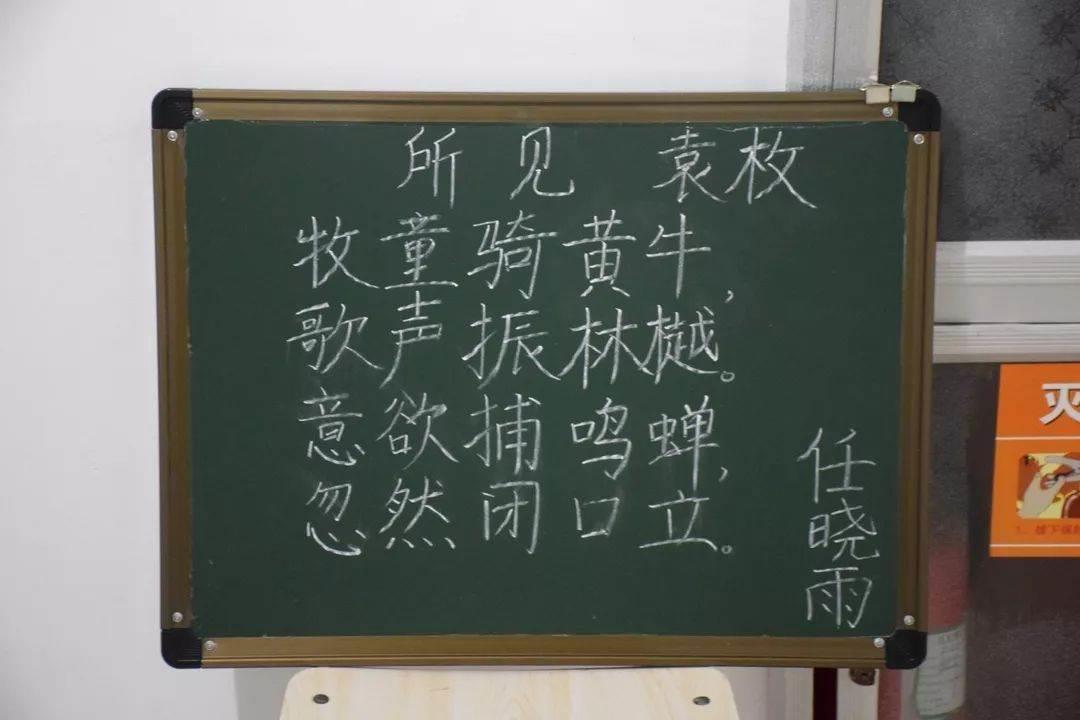 所见 袁枚
牧童骑黄牛，
歌声振林樾。
意欲捕鸣蝉，
忽然闭口立。
任晓雨
灭